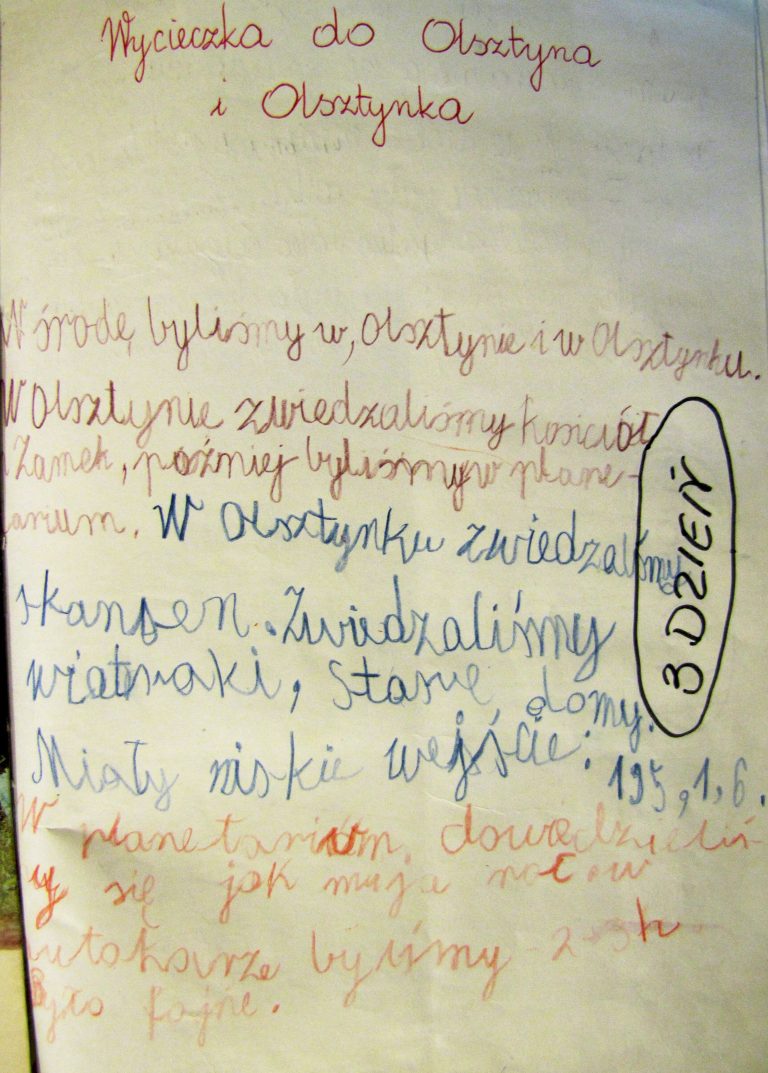 Wycieczka do Olsztyna
i Olsztynka
W środę byliśmy w, Olsztynie i w Olsztynku.
W Olsztynie zwiedzaliśmy kościół
i Zamek, pożniej byliśmy w plane-
tarium. W Olsztynku zwiedzaliśmy
skansen. Zwiedzaliśmy
wiatraki, stare domy.
Miały niskie wejście: 195, 1,6.
W planetarium dowiedzieliś-
my się jak mija noc. W
autokarze byliśmy 2-3h
Było fajne.
3 DZIEŃ